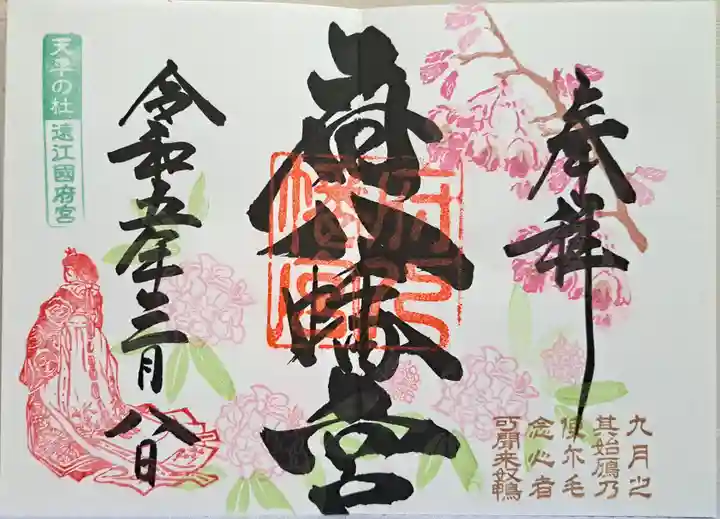 奉拝
府八幡宮
府八幡印
令和五年三月八日
天平の杜 遠江國府宮
九月之
其始鴈乃
使尓毛
念心者
可聞来奴鴨